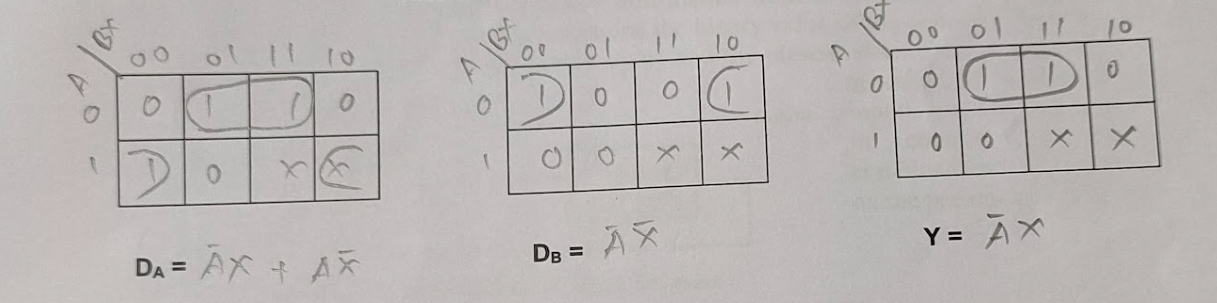 A \ BX 00 01 11 10
0 0 1 1 0
1 1 0 X X
D_A = ĀX + AX̄
A \ BX 00 01 11 10
0 1 0 0 1
1 0 0 X X
D_B = ĀX̄
A \ BX 00 01 11 10
0 0 1 1 0
1 0 0 X X
Y = ĀX